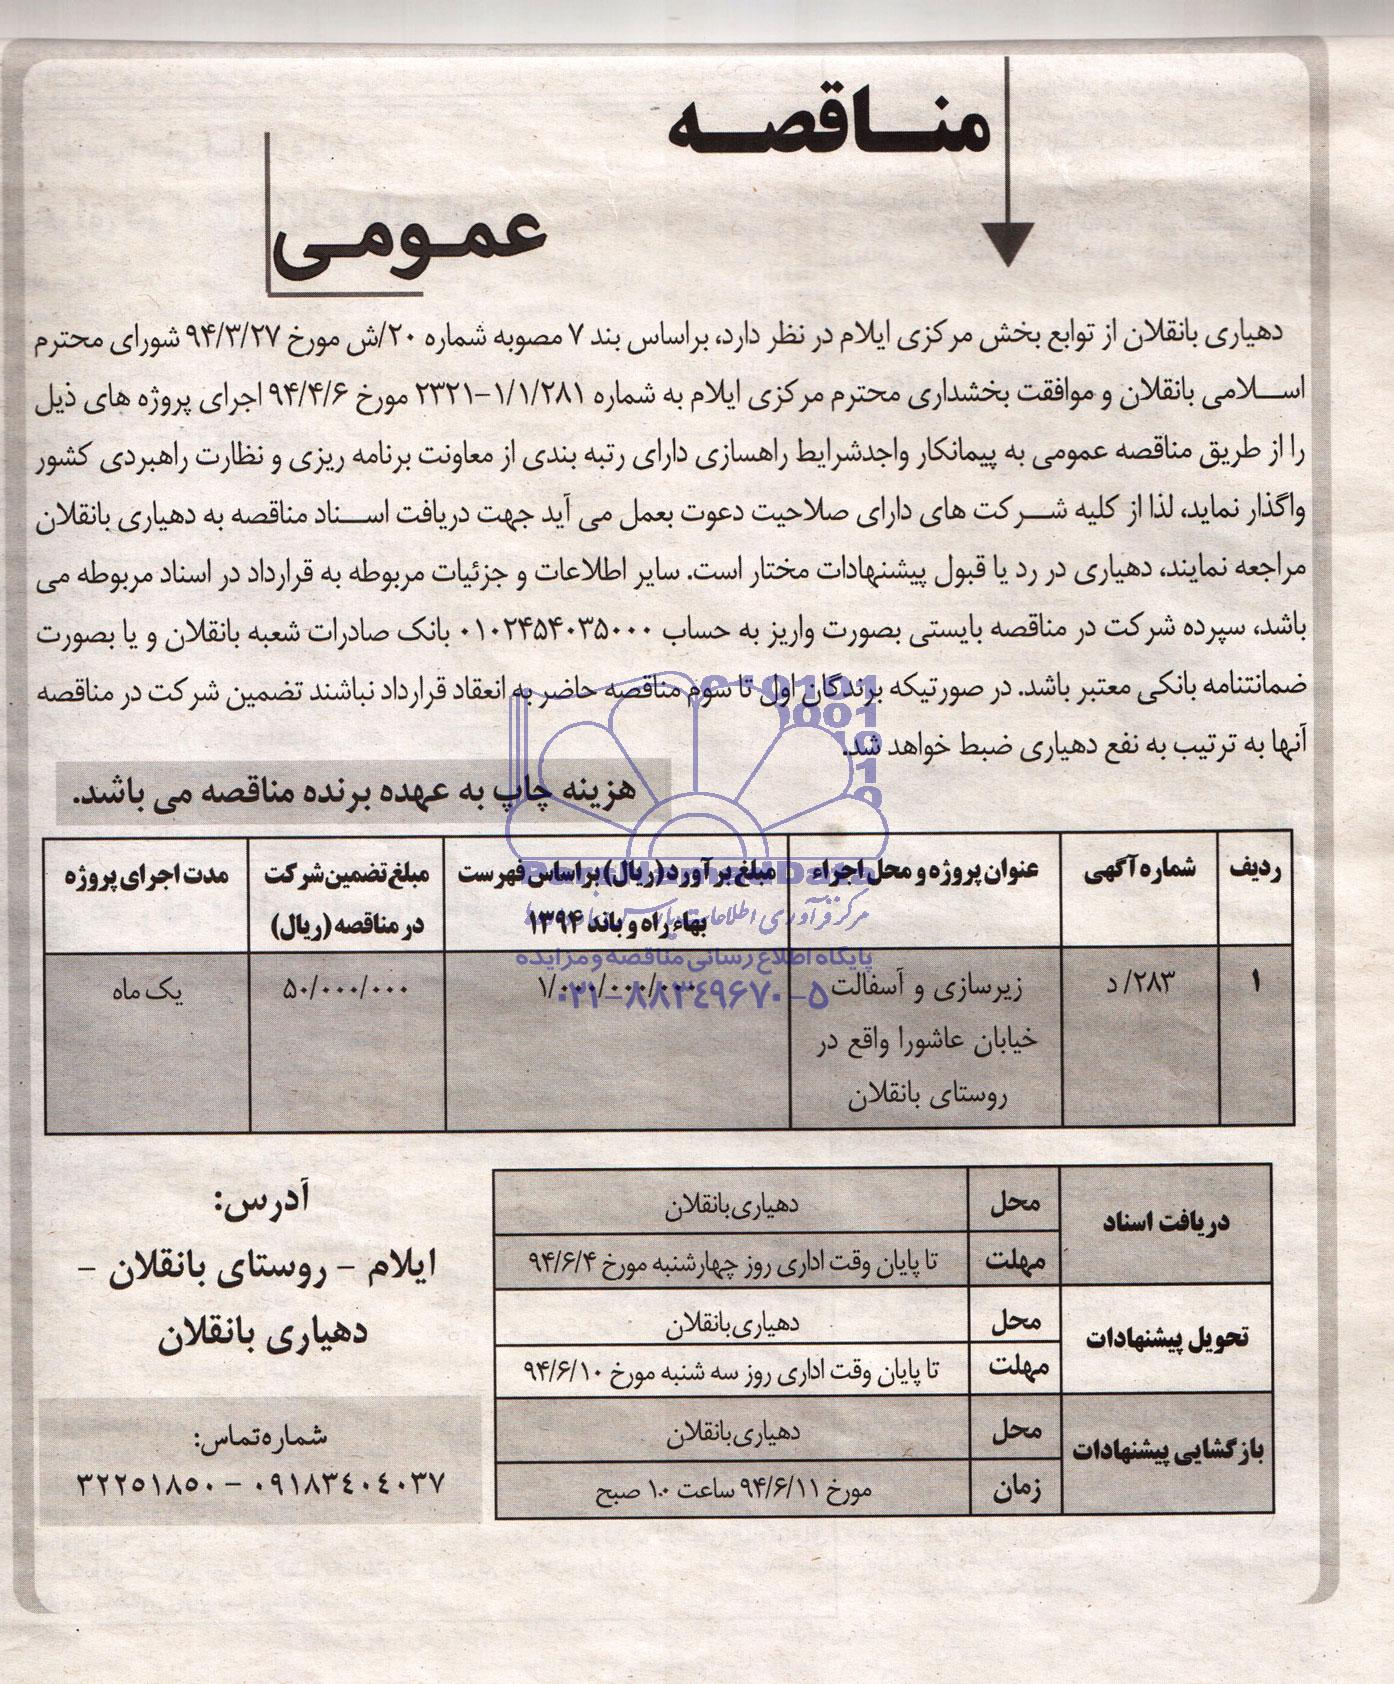 مناقصه
عمومی
دهیاری بانقلان از توابع بخش مرکزی ایلام در نظر دارد، براساس بند ۷ مصوبه شماره ۲۰/ش مورخ ۹۴/۳/۲۷ شورای محترم
اسلامی بانقلان و موافقت بخشداری محترم مرکزی ایلام به شماره ۱/۱/۲۸۱-۲۳۲۱ مورخ ۹۴/۴/۶ اجرای پروژه های ذیل
را از طریق مناقصه عمومی به پیمانکار واجدشرایط راهسازی دارای رتبه بندی از معاونت برنامه ریزی و نظارت راهبردی کشور
واگذار نماید، لذا از کلیه شرکت های دارای صلاحیت دعوت بعمل می آید جهت دریافت اسناد مناقصه به دهیاری بانقلان
مراجعه نمایند، دهیاری در رد یا قبول پیشنهادات مختار است. سایر اطلاعات و جزئیات مربوطه به قرارداد در اسناد مربوطه می
باشد، سپرده شرکت در مناقصه بایستی بصورت واریز به حساب ۰۱۰۲۴۵۴۰۳۵۰۰۰ بانک صادرات شعبه بانقلان و یا بصورت
ضمانتنامه بانکی معتبر باشد. در صورتیکه برندگان اول تا سوم مناقصه حاضر به انعقاد قرارداد نباشند تضمین شرکت در مناقصه
آنها به ترتیب به نفع دهیاری ضبط خواهد شد.
هزینه چاپ به عهده برنده مناقصه می باشد.
ردیف شماره آگهی عنوان پروژه و محل اجراء مبلغ برآورد (ریال) براساس فهرست بهاء راه و باند ۱۳۹۴ مبلغ تضمین شرکت در مناقصه (ریال) مدت اجرای پروژه
۱ ۲۸۳/د زیرسازی و آسفالت خیابان عاشورا واقع در روستای بانقلان ۱/۰۰۰/۰۰۰/۰۰۰ ۵۰/۰۰۰/۰۰۰ یک ماه
پایگاه اطلاع رسانی مناقصه و مزایده
۰۲۱-۸۸۳۴۹۶۷۰-۵
دریافت اسناد
محل دهیاری بانقلان
مهلت تا پایان وقت اداری روز چهارشنبه مورخ ۹۴/۶/۴
تحویل پیشنهادات
محل دهیاری بانقلان
مهلت تا پایان وقت اداری روز سه شنبه مورخ ۹۴/۶/۱۰
بازگشایی پیشنهادات
محل دهیاری بانقلان
زمان مورخ ۹۴/۶/۱۱ ساعت ۱۰ صبح
آدرس:
ایلام - روستای بانقلان -
دهیاری بانقلان
شماره تماس:
۰۹۱۸۳٤۰٤۰۳۷ - ۳۲۲٥۱۸٥۰